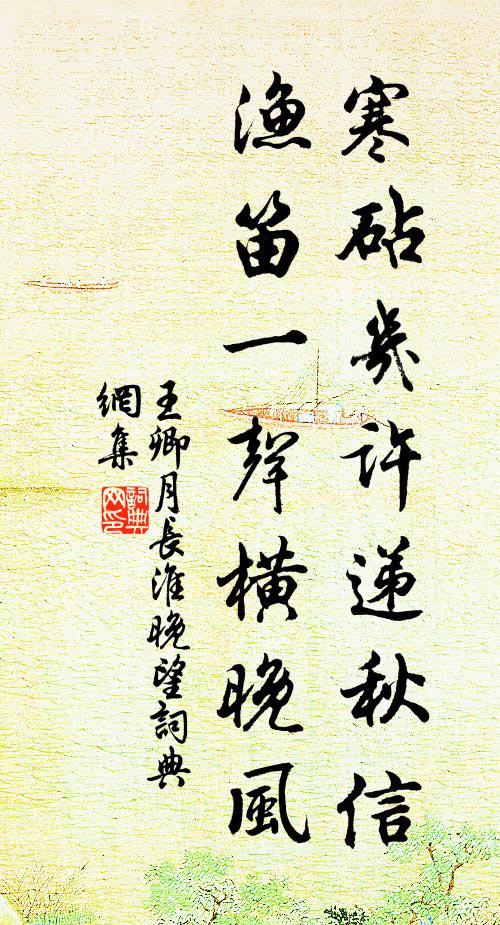 寒砧幾許递秋信
渔笛一聲橫晚風
王卿月長淮晚望詞典
網集
詞典
网印